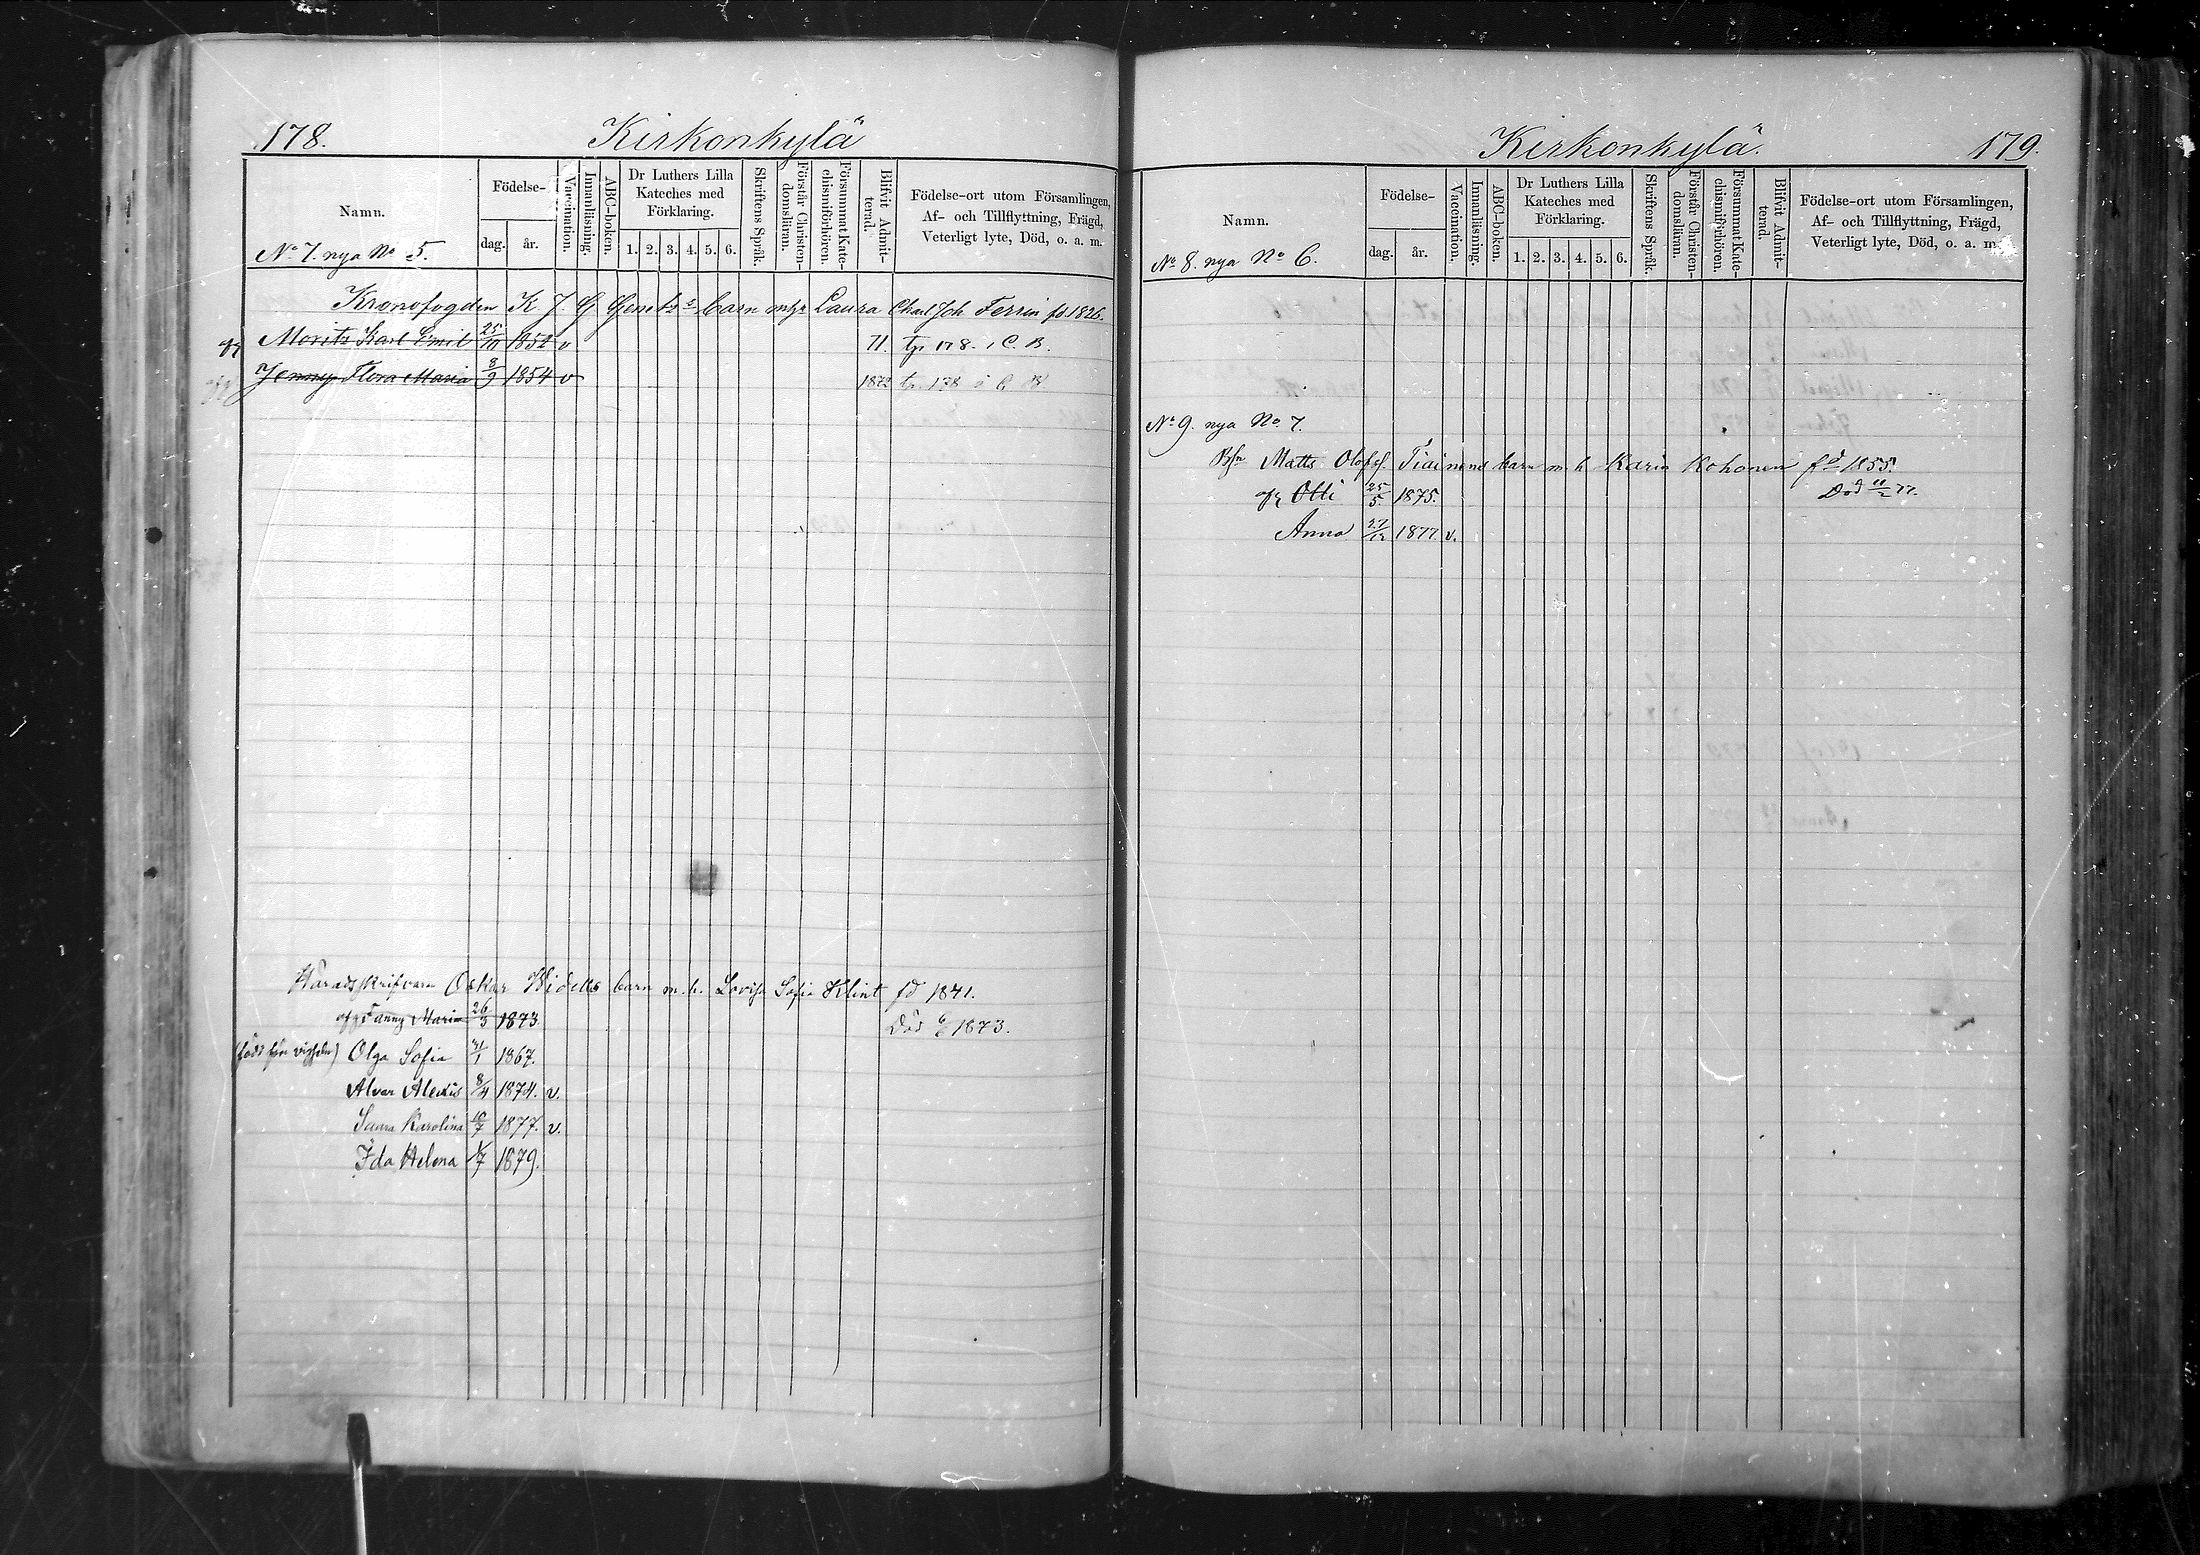 178.
Kirkonkylä
Namn.
Födelse-
dag.
år.
Vaccination.
Innanläsning.
ABC-boken.
Dr Luthers Lilla
Kateches med
Förklaring.
1. 2. 3. 4. 5. 6.
Skriftens Språk.
Förstår Christen-
domsläran.
Försummat Kate-
chismiförhören.
Blifvit Admit-
terad.
Födelse-ort utom Församlingen,
Af- och Tillflyttning, Frägd,
Veterligt lyte, Död, o. a. m.
No 7. nya No 5.
Kronofogden K J. G Genetz's barn mhr Laura Charl Joh Ferrin fd 1826.
Moritz Karl Emil 25/10 1852 v 71. tr 178. i C. B.
Jenny Flora Maria 8/9 1854 v 1872 tr 178 i C B
Häradsskrifvaren Oskar Widells barn m. h. Lovisa Sofia Klint fd 1841.
Fanny Maria 26/3 1873 Död 1873.
Olga Sofia 31/1 1867.
Alvar Alexis 8/4 1874. v.
Karolina 10/7 1877. v.
Ida Helena 1/7 1879.
Kirkonkylä.
179.
Namn.
Födelse-
dag.
år.
Vaccination.
Innanläsning.
ABC-boken.
Dr Luthers Lilla
Kateches med
Förklaring.
1. 2. 3. 4. 5. 6.
Skriftens Språk.
Förstår Christen-
domsläran.
Försummat Kate-
chismiförhören.
Blifvit Admit-
terad.
Födelse-ort utom Församlingen,
Af- och Tillflyttning, Frägd,
Veterligt lyte, Död, o. a. m.
No 8. nya No 6.
No 9. nya No 7.
Matts Olofsf. Tiainens barn m. h. Karin Kohonen fd 1855.
Olli 25/5. 1875. Död 11/2 77.
Anna 27/12 1877. v.